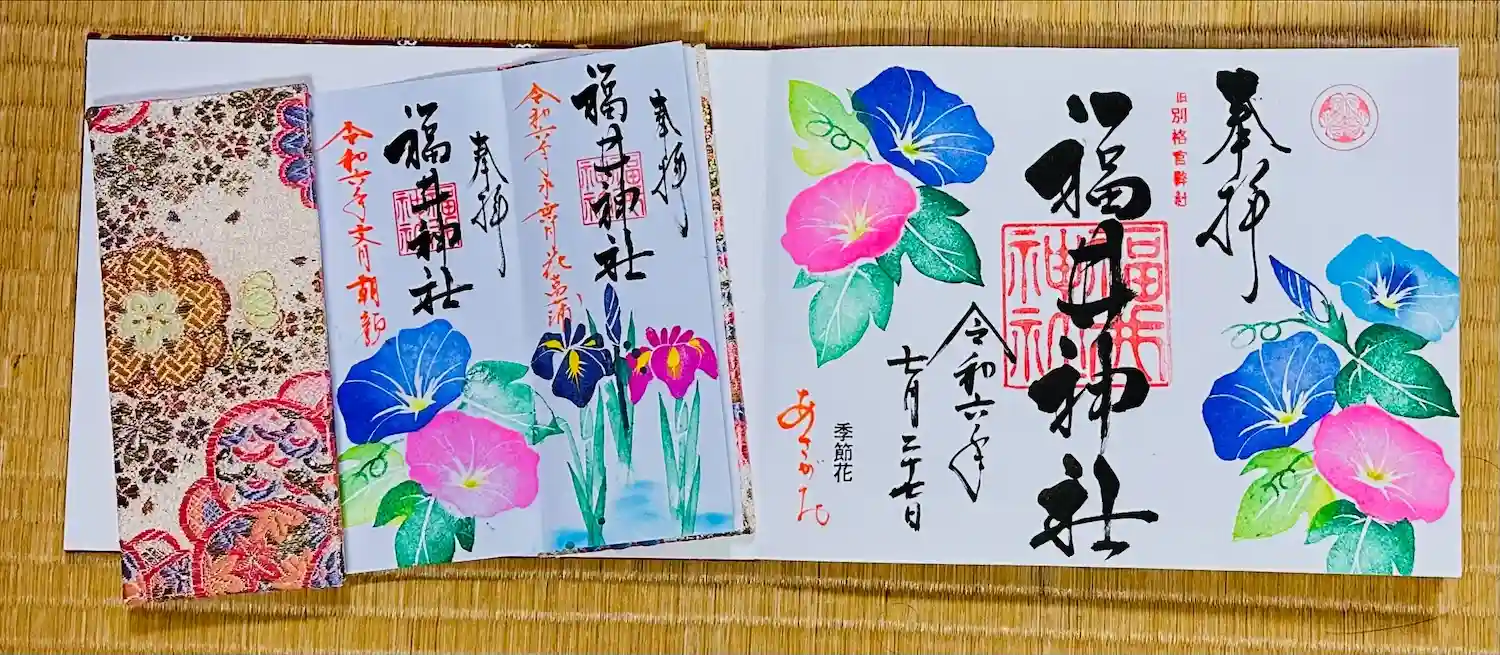 奉拝
旧別格官幣社
福井神社
福井神社
令和六年
七月二十七日
季節花
あさがお
奉拝
福井神社
福井神社
令和六年水無月花菖蒲
奉拝
福井神社
福井神社
令和六年文月朝顔